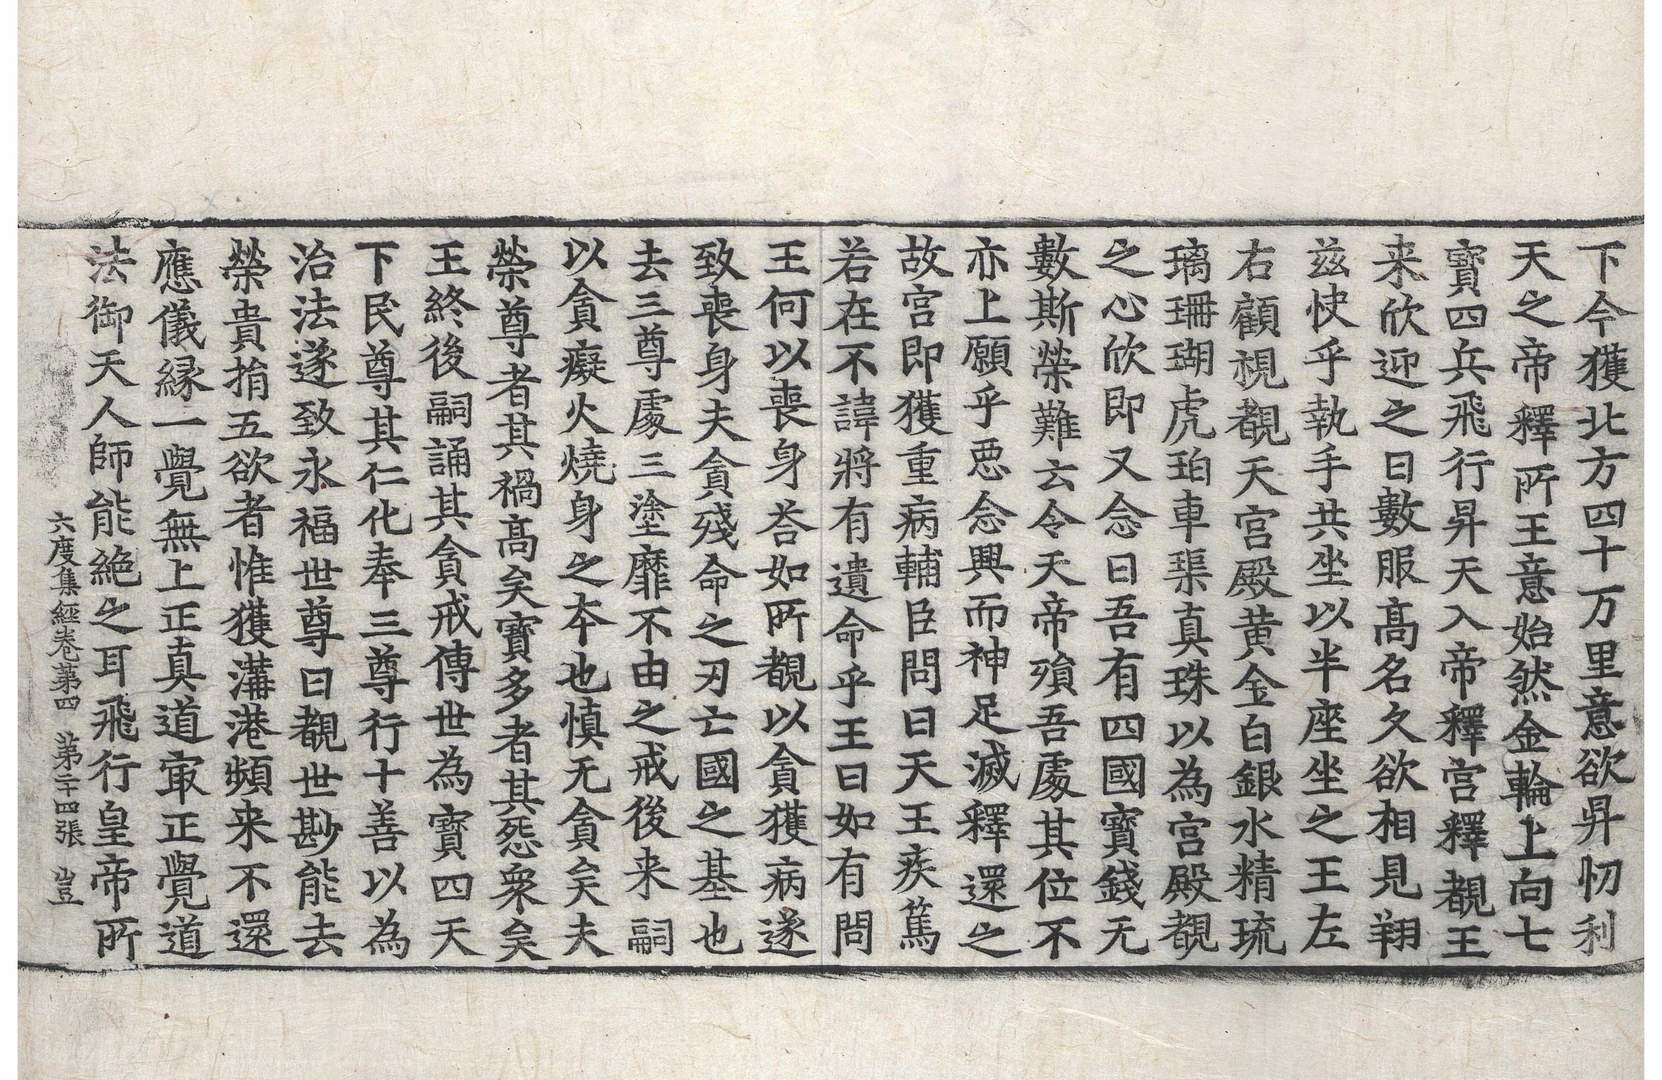 下今獲北方四十万里意欲昇忉利
天之帝釋所王意始然金輪上向七
寶四兵飛行昇天入帝釋宮釋覩王
来欣迎之曰數服髙名久欲相見翔
玆快乎執手共坐以半座坐之王左
右顧視覩天宮殿黃金白銀水精琉
璃珊瑚虎珀車璖真珠以為宮殿覩
之心欣即又念曰吾有四國寶錢无
數斯榮難云令天帝殞吾處其位不
亦上願乎惡念興而神足滅釋還之
故宮即獲重病輔臣問曰天王疾篤
若在不諱將有遺命乎王曰如有問
王何以喪身荅如所覩以貪獲病遂
致喪身夫貪殘命之刃亡國之基也
去三尊處三塗靡不由之戒後来嗣
以貪癡火燒身之本也慎无貪矣夫
榮尊者其禍髙矣寶多者其怨衆矣
王終後嗣誦其貪戒傳世為寶四天
下民尊其仁化奉三尊行十善以為
治法遂致永福世尊曰覩世尠能去
榮貴捐五欲者惟獲溝港頻来不還
應儀緣一覺無上正真道㝡正覺道
法御天人師能絕之耳飛行皇帝所
六度集經卷第四　第二十四張　豈